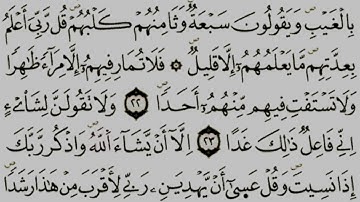 بِالْغَيْبِ وَيَقُولُونَ سَبْعَةٌ وَثَامِنُهُمْ كَلْبُهُمْ قُل رَّبِّي أَعْلَمُ
بِعِدَّتِهِم مَّا يَعْلَمُهُمُ إِلَّا قَلِيلٌ ۞ فَلَا تُمَارِ فِيهِمُ إِلَّا مِرَآءً ظَٰهِرًا
وَلَا تَسْتَفْتِ فِيهِم مِّنْهُمُ أَحَدًا ٢٢ وَلَا تَقُولَنَّ لِشَاْىْءٍ
إِنِّي فَاعِلٌ ذَٰلِكَ غَدًا ٢٣ إِلَّا أَنْ يَّشَآءَ اللَّهُ وَاذْكُر رَّبَّكَ
إِذَا نَسِيتَ وَقُلْ عَسَىٰ أَنْ يَّهْدِيَنِۦ رَبِّي لِأَقْرَبَ مِنْ هَٰذَا رَشَدًا